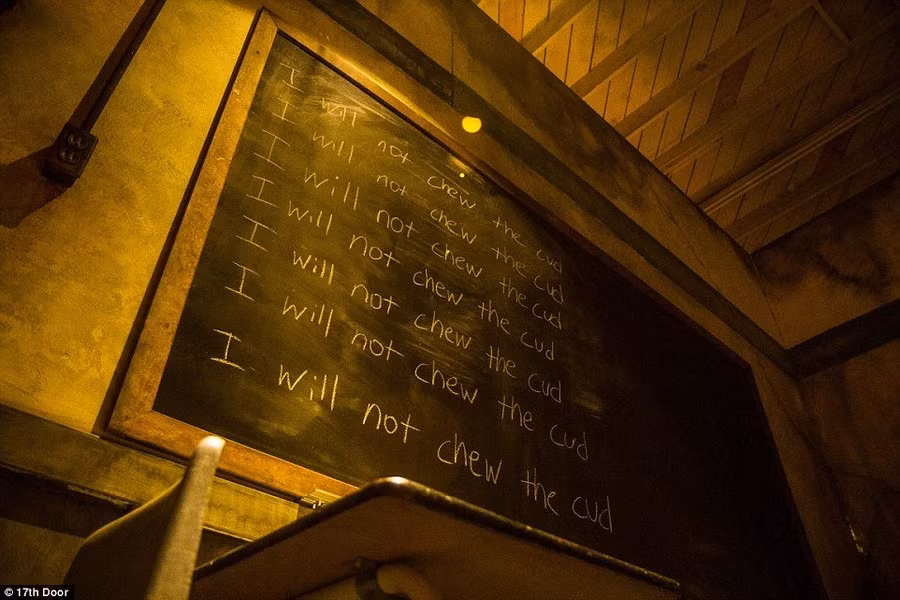 I not chew the cud
I will not chew the cud
I will not chew the cud
I will not chew the cud
I will not chew the cud
I will not chew the cud
I will not chew the cud
© 17th Door